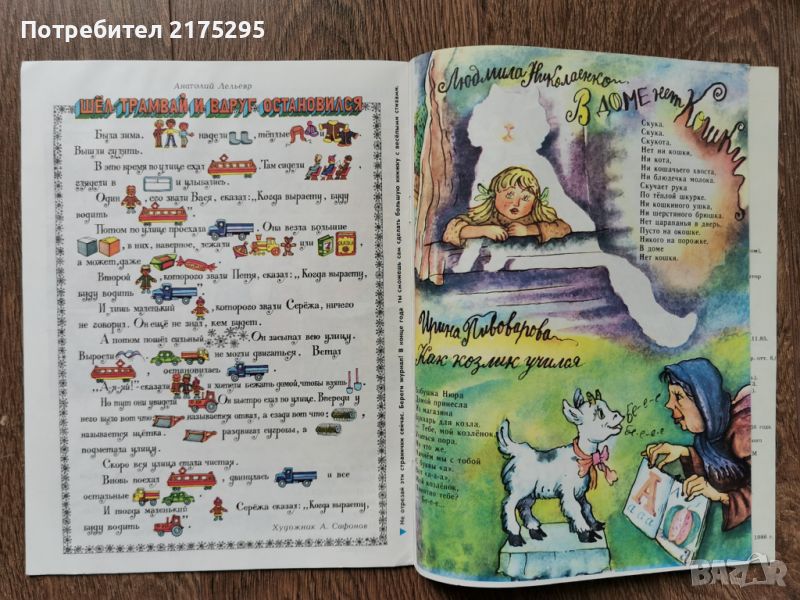 Потребител 2175295
Анатолий Лельевр
ШЁЛ ТРАМВАЙ И ВДРУГ ОСТАНОВИЛСЯ
Была зима. надели , тёплые
Вышли гулять.
В это время по улице ехал . Там сидели
глядели в и улыбались.
Один , его звали Вася, сказал: „Когда вырасту, буду
водить
Потом по улице проехала . Она везла большие
, в них, наверное, лежали или
а может, даже
Второй , которого звали Петя, сказал: „Когда вырасту,
буду водить
И лишь маленький , которого звали Серёжа, ничего
не говорил. Он ещё не знал, кем будет.
А потом пошёл сильный Он засыпал всю улицу.
Выросли не могли двигаться. Встал
, остановилась
„А-я-яй!" сказали и хотели бежать домой, чтобы взять
Но тут они увидели Он быстро ехал по улице. Впереди у
него было вот что: называется отвал, а сзади вот что:
называется щётка. раздвигал сугробы, а
подметала улицу.
Скоро вся улица стала чистая.
Вновь поехал , двинулась и все
остальные
И тогда маленький Серёжа сказал: „Когда вырасту,
буду водить
Художник А. Сафонов
Не отрезай эти странички сейчас. Береги журнал! В конце года ты сможешь сам сделать большую книжку с весёлыми стихами.
Людмила Николаенко
В ДОМЕ НЕТ КОШКИ
Скука.
Скука.
Скукота.
Нет ни кошки,
Ни кота,
Ни кошачьего хвоста,
Ни блюдечка молока.
Скучает рука
По тёплой шкурке.
Ни кошкиного ушка,
Ни шерстяного брюшка.
Нет царапанья в дверь.
Пусто на окошке.
Никого на порожке.
В доме
Нет кошки.
Ирина Пивоварова
Как козлик учился
бушка Нюра
омой принесла
з магазина
кварь для козла.
Тебе, мой козлёнок,
читься пора.
то же,
чнём мы с тобой
буквы «а».
«а-а-а»
ой козлёнок,
онятно тебе?
Бе-е-е...
Бе-е-е
Бе-е-е-е
А
а а а
1986 г.
BAZAR